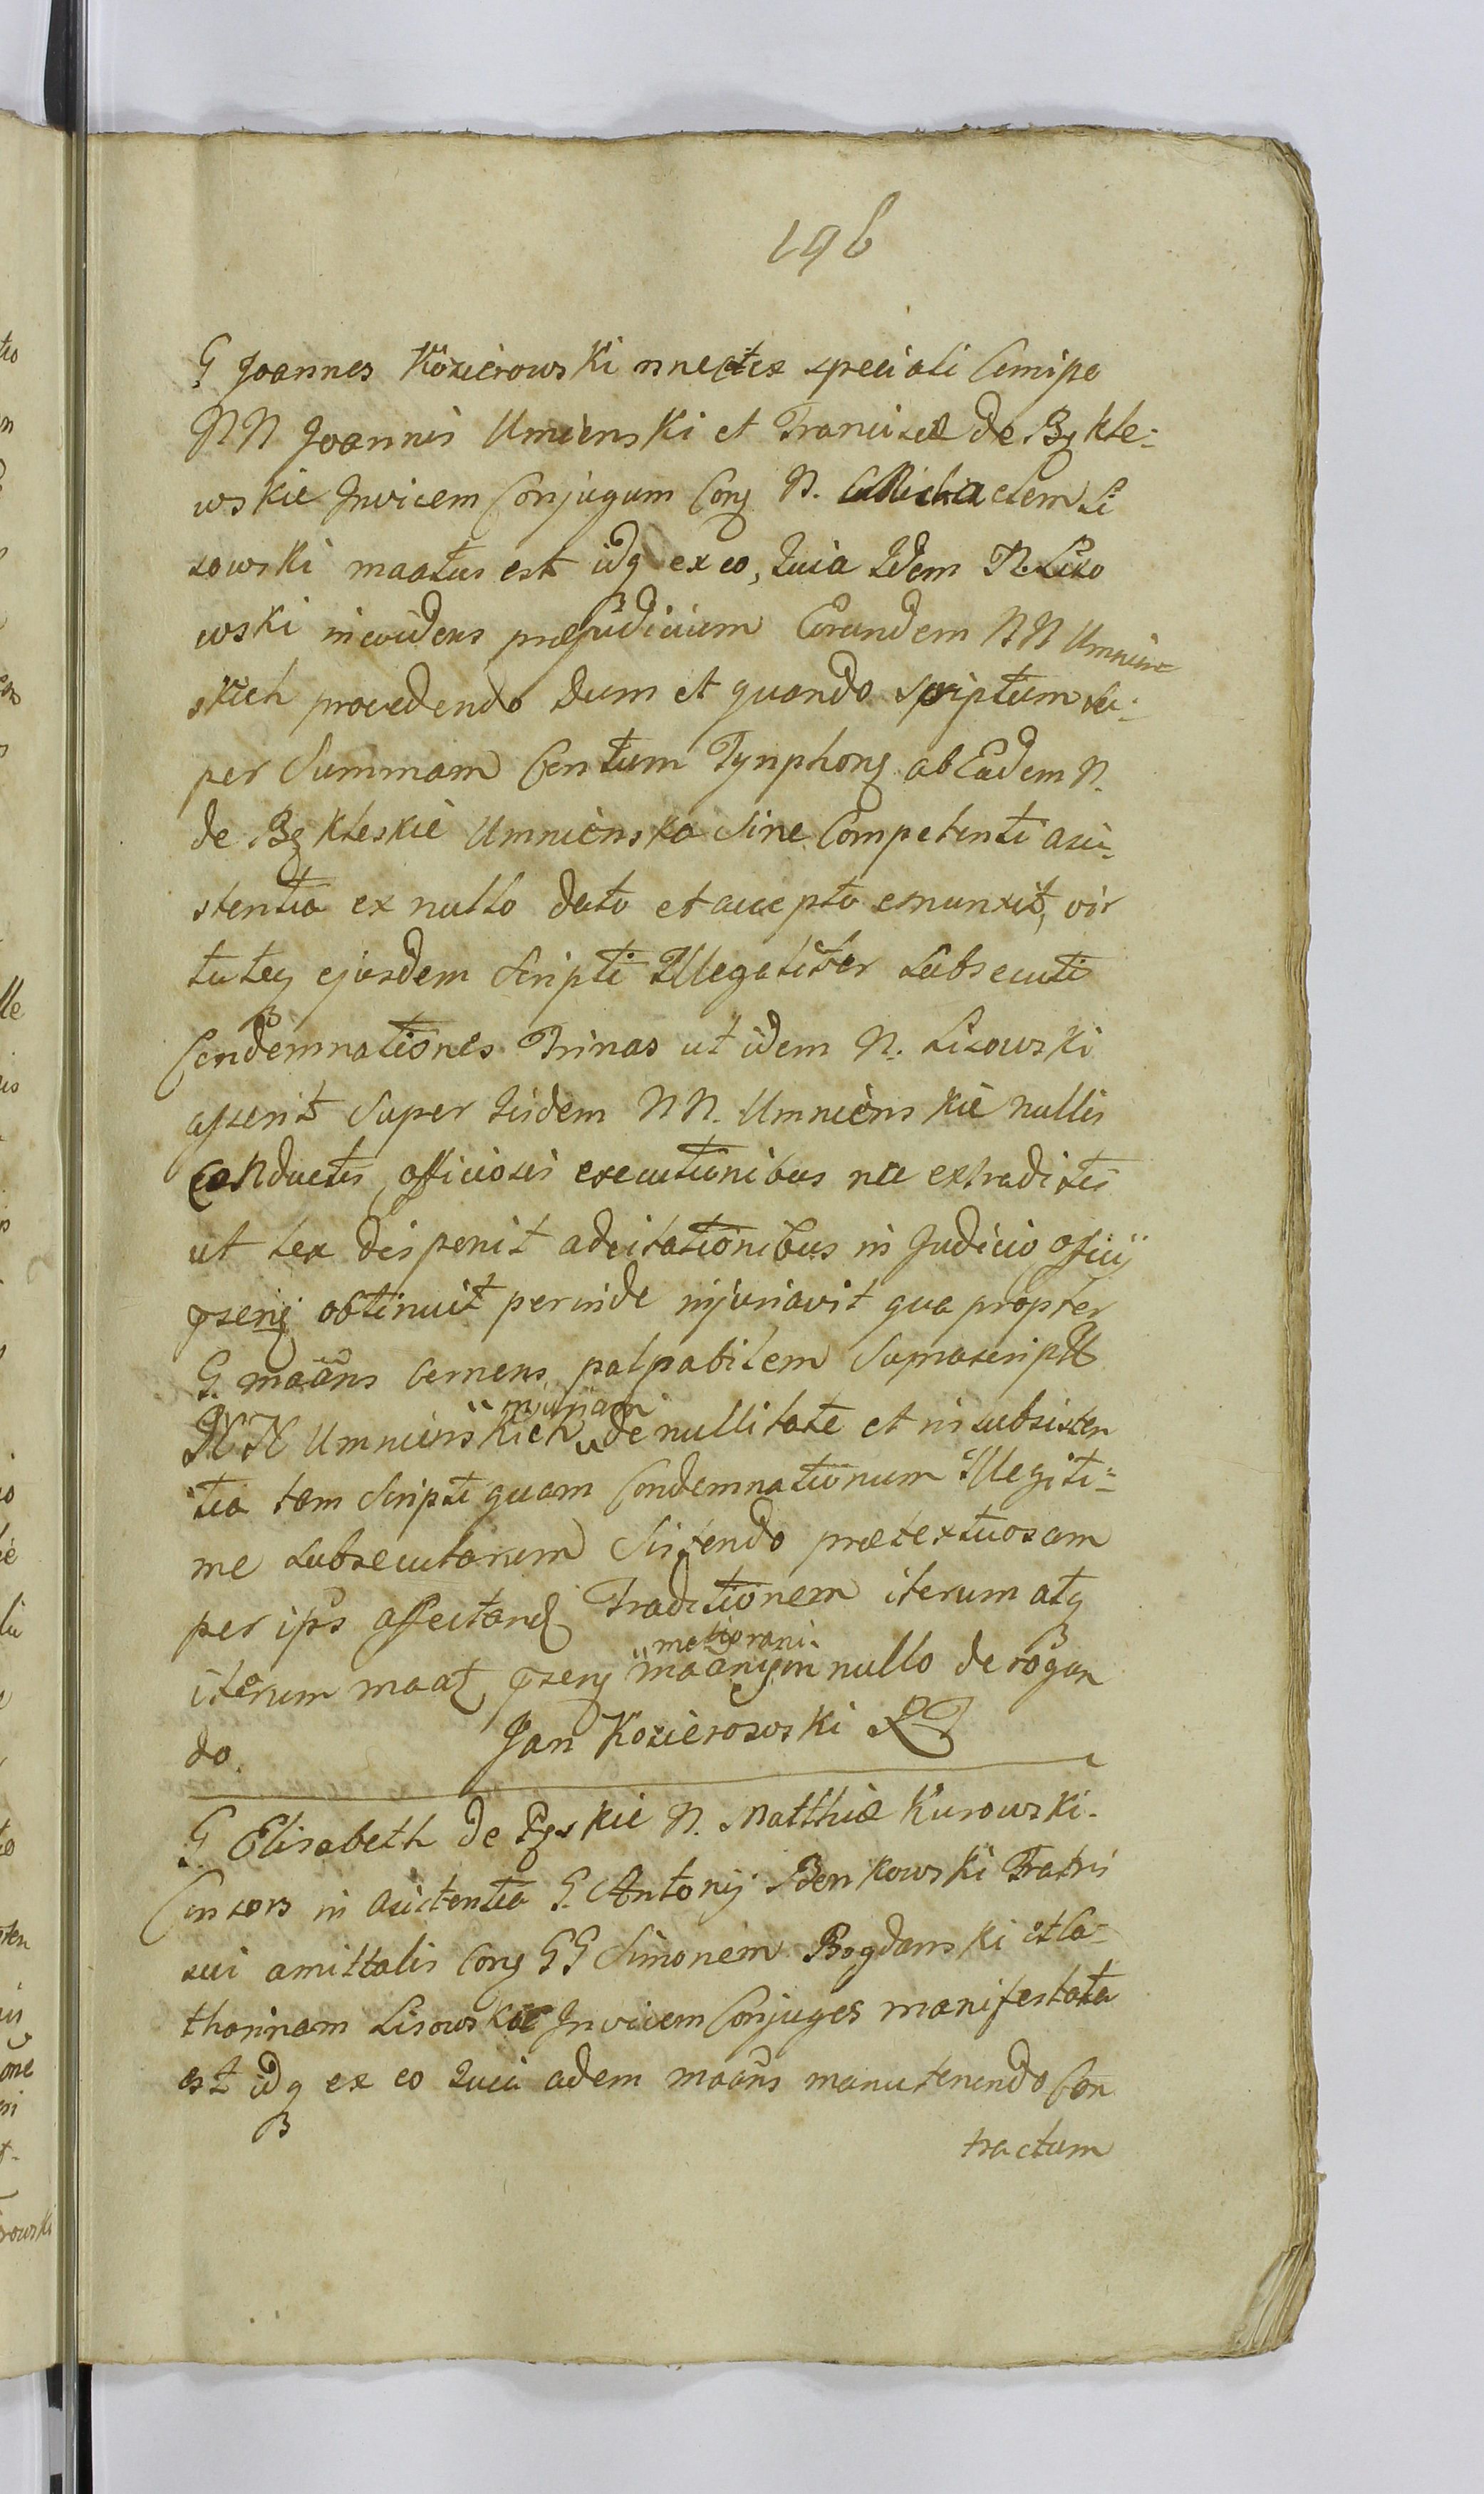 196
G Joannes Kozierowski nnectex speciali Comisso
NN Joannis Umienski et Franciscæ de Bękle-
wskie Invicem Conjugum Cons N. Michaelem Li
sowski maatus est idq ex eo, Quia Idem N. Liso
wski in evidens præjudicium Eorundem NN Umnien
skich procedendo Dum et quando Scriptum su-
per Summam Centum Tynphons ab Eadem N.
de Bękleskie Umnienska Sine Competenti asi-
stentia ex nullo dato et accepto emunxit, vir
tuteq ejusdem Scripti Illegaliter Subsecuti
Condemnationes Trinas ut idem N. Lisowski
asserit Super Iisdem NN. Umnienskie nullis
Conductis officiosis executionibus nec extraditis
ut lex disponit adcitationibus in Judicio Officij
pseng obtinuit perinde injuriavit qua propter
G. maans cernens palpabilem Suprascript
injuriam
NN Umnienskich de nullitate et insubsisten
tia tam Scripti quam Condemnationum Illegiti-
me Subsecutarum Sistendo prætextuosam
per ips affectand Traditionem iterum atq
meliorani
iterum maat pseng maanijin nullo derogan
do. Jan Kozierowski
G Elisabeth de Pgskie N. Matthiæ Kurowski
Consors in asistentia G. Antonij Benkowski Fratris
sui amittalis Cons GG Simonem Bogdanski et Ca-
tharinam Lisowskie Invicem Conjuges manifestata
est idq ex eo Quia adem maans manutenendo Con
tractum